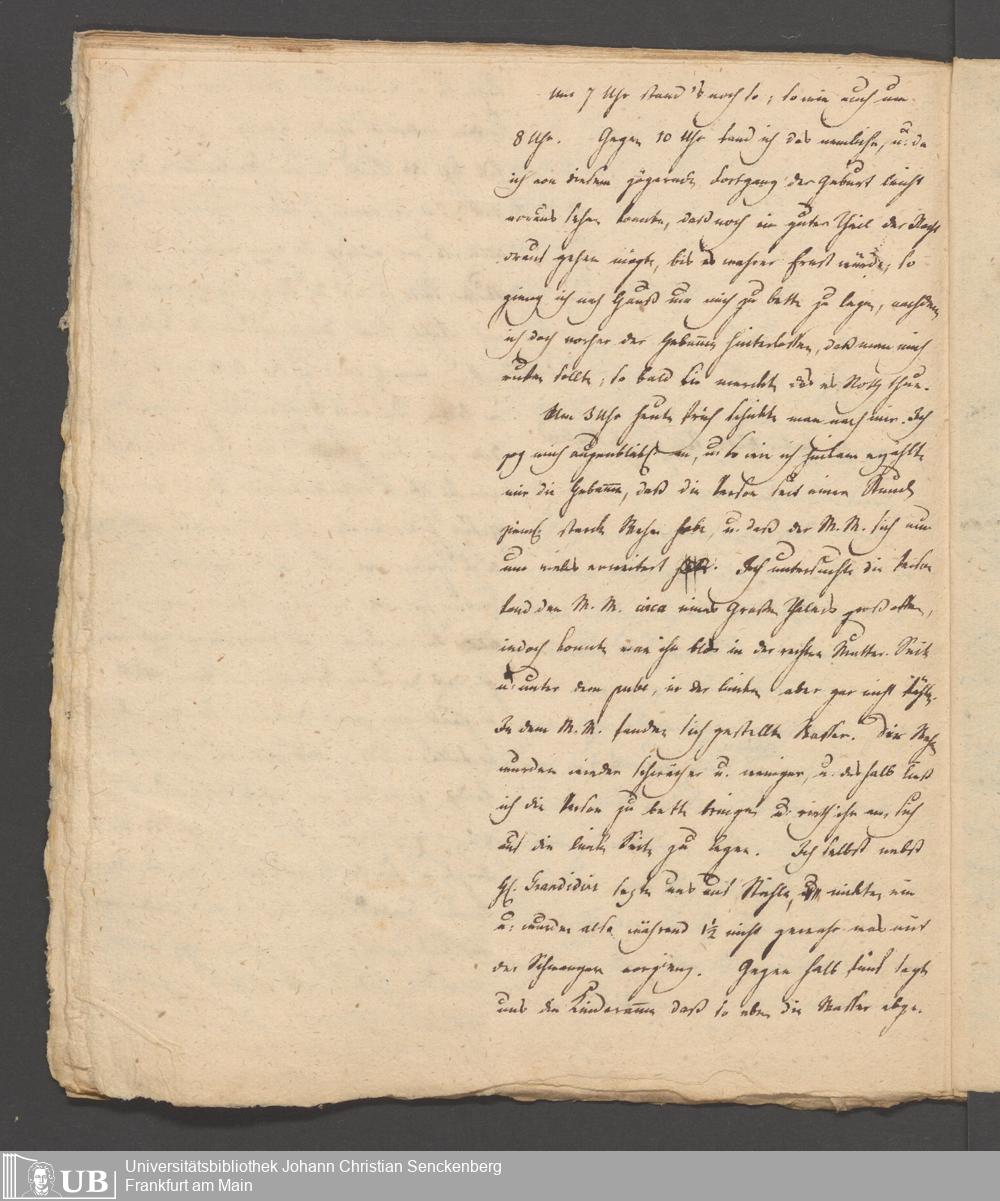 Um 7 Uhr stand's noch so; so wie auch um
8 Uhr. Gegen 10 Uhr fand ich das nemliche, u: da
ich von diesem zögernden Fortgang der Geburt leicht
voraus sehen konnte, daß noch ein guter Theil der Nacht
drauf gehen mögte, bis es wahrer Ernst würde; so
gieng ich nach Hauß um mich zu bette zu legen, nachdem
ich doch vorher der Hebamme hinterlassen, daß man mich
rufen sollte, so bald sie merckte das es Noth thue.
Um 3 Uhr heute früh schickte man nach mir. Ich
zog mich augenblickl. an, u: so wie ich hinkam erzählte
mir die Hebamme, daß die Person seit einer Stunde
ziemlich starcke Wehen habe, u. daß der M. M. sich um
um vieles erweitert. Ich untersuchte die Person
fand den M. M. circa eines Großen Thalers groß offen,
jedoch konnte man ihn blos in der rechten Mutter-Seite
u: unter dem pube, in der lincken aber gar nicht fühlen.
In dem M. M. fanden sich gestellte Wasser. Die Wehen
wurden wieder schwächer u. weniger, u. deshalb ließ
ich die Person zu bette bringen u: rieth ihr an, sich
auf die lincke Seite zu legen. Ich selbst nebst
H. Grandidier sezten uns auf Stühle, nickten ein
u: wurden also während 1½ nicht gewahr was mit
der Schwangern vorgieng. Gegen halb fünf sagte
uns die Kinderamme daß so eben die Wasser abge-
Universitätsbibliothek Johann Christian Senckenberg
Frankfurt am Main
UB